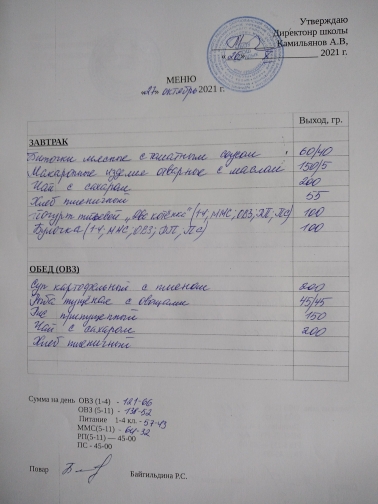 Утверждаю
Директонр школы
Камильянов А.В,
2021 г.
МЕНЮ
«27» октября 2021 г.
Выход, гр.
ЗАВТРАК
мясные с томатным соусом 60/40
Макаронные изделие отварное с маслом 150/5
Чай с сахаром 200
Хлеб пшеничный 55
Йогурт питьевой (1-4, ММС, ОВЗ, ЭП, ПС) 100
Булочка (1-4, ММС, ОВЗ, ЭП, ПС) 100
ОБЕД (ОВЗ)
Суп картофельный с пшеном 200
Рыба тушеная с овощами 45/45
Рис припущенный 150
Чай с сахаром 200
Хлеб пшеничный
Сумма на день ОВЗ (1-4) - 121-06
ОВЗ (5-11) - 138-52
Питание 1-4 кл. - 57-43
ММС(5-11) - 64-32
РП(5-11) — 45-00
ПС - 45-00
Повар Байгильдина Р.С.